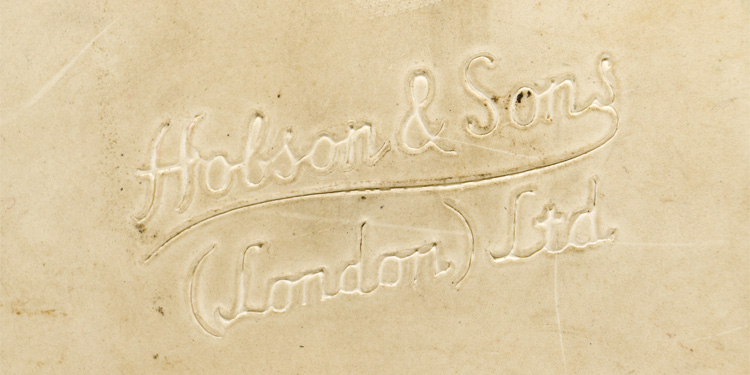 Hobson & Sons
(London) Ltd.